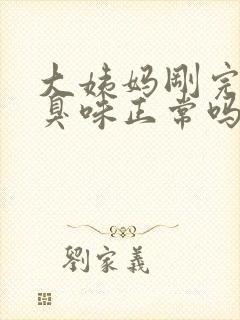 大姨妈刚完
臭味正常吗
劉家義